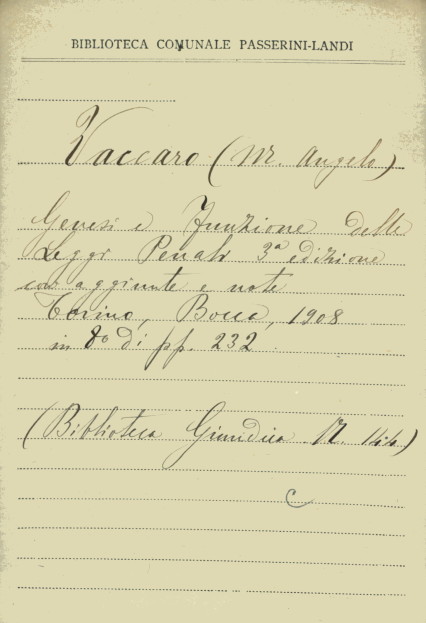 BIBLIOTECA COMUNALE PASSERINI-LANDI
Vaccaro (M. Angelo)
Genesi e Funzione delle
Leggi Penali 3ª edizione
con aggiunte e note
Torino, Bocca, 1908
in 8° di pp. 232
(Biblioteca Giuridica N.